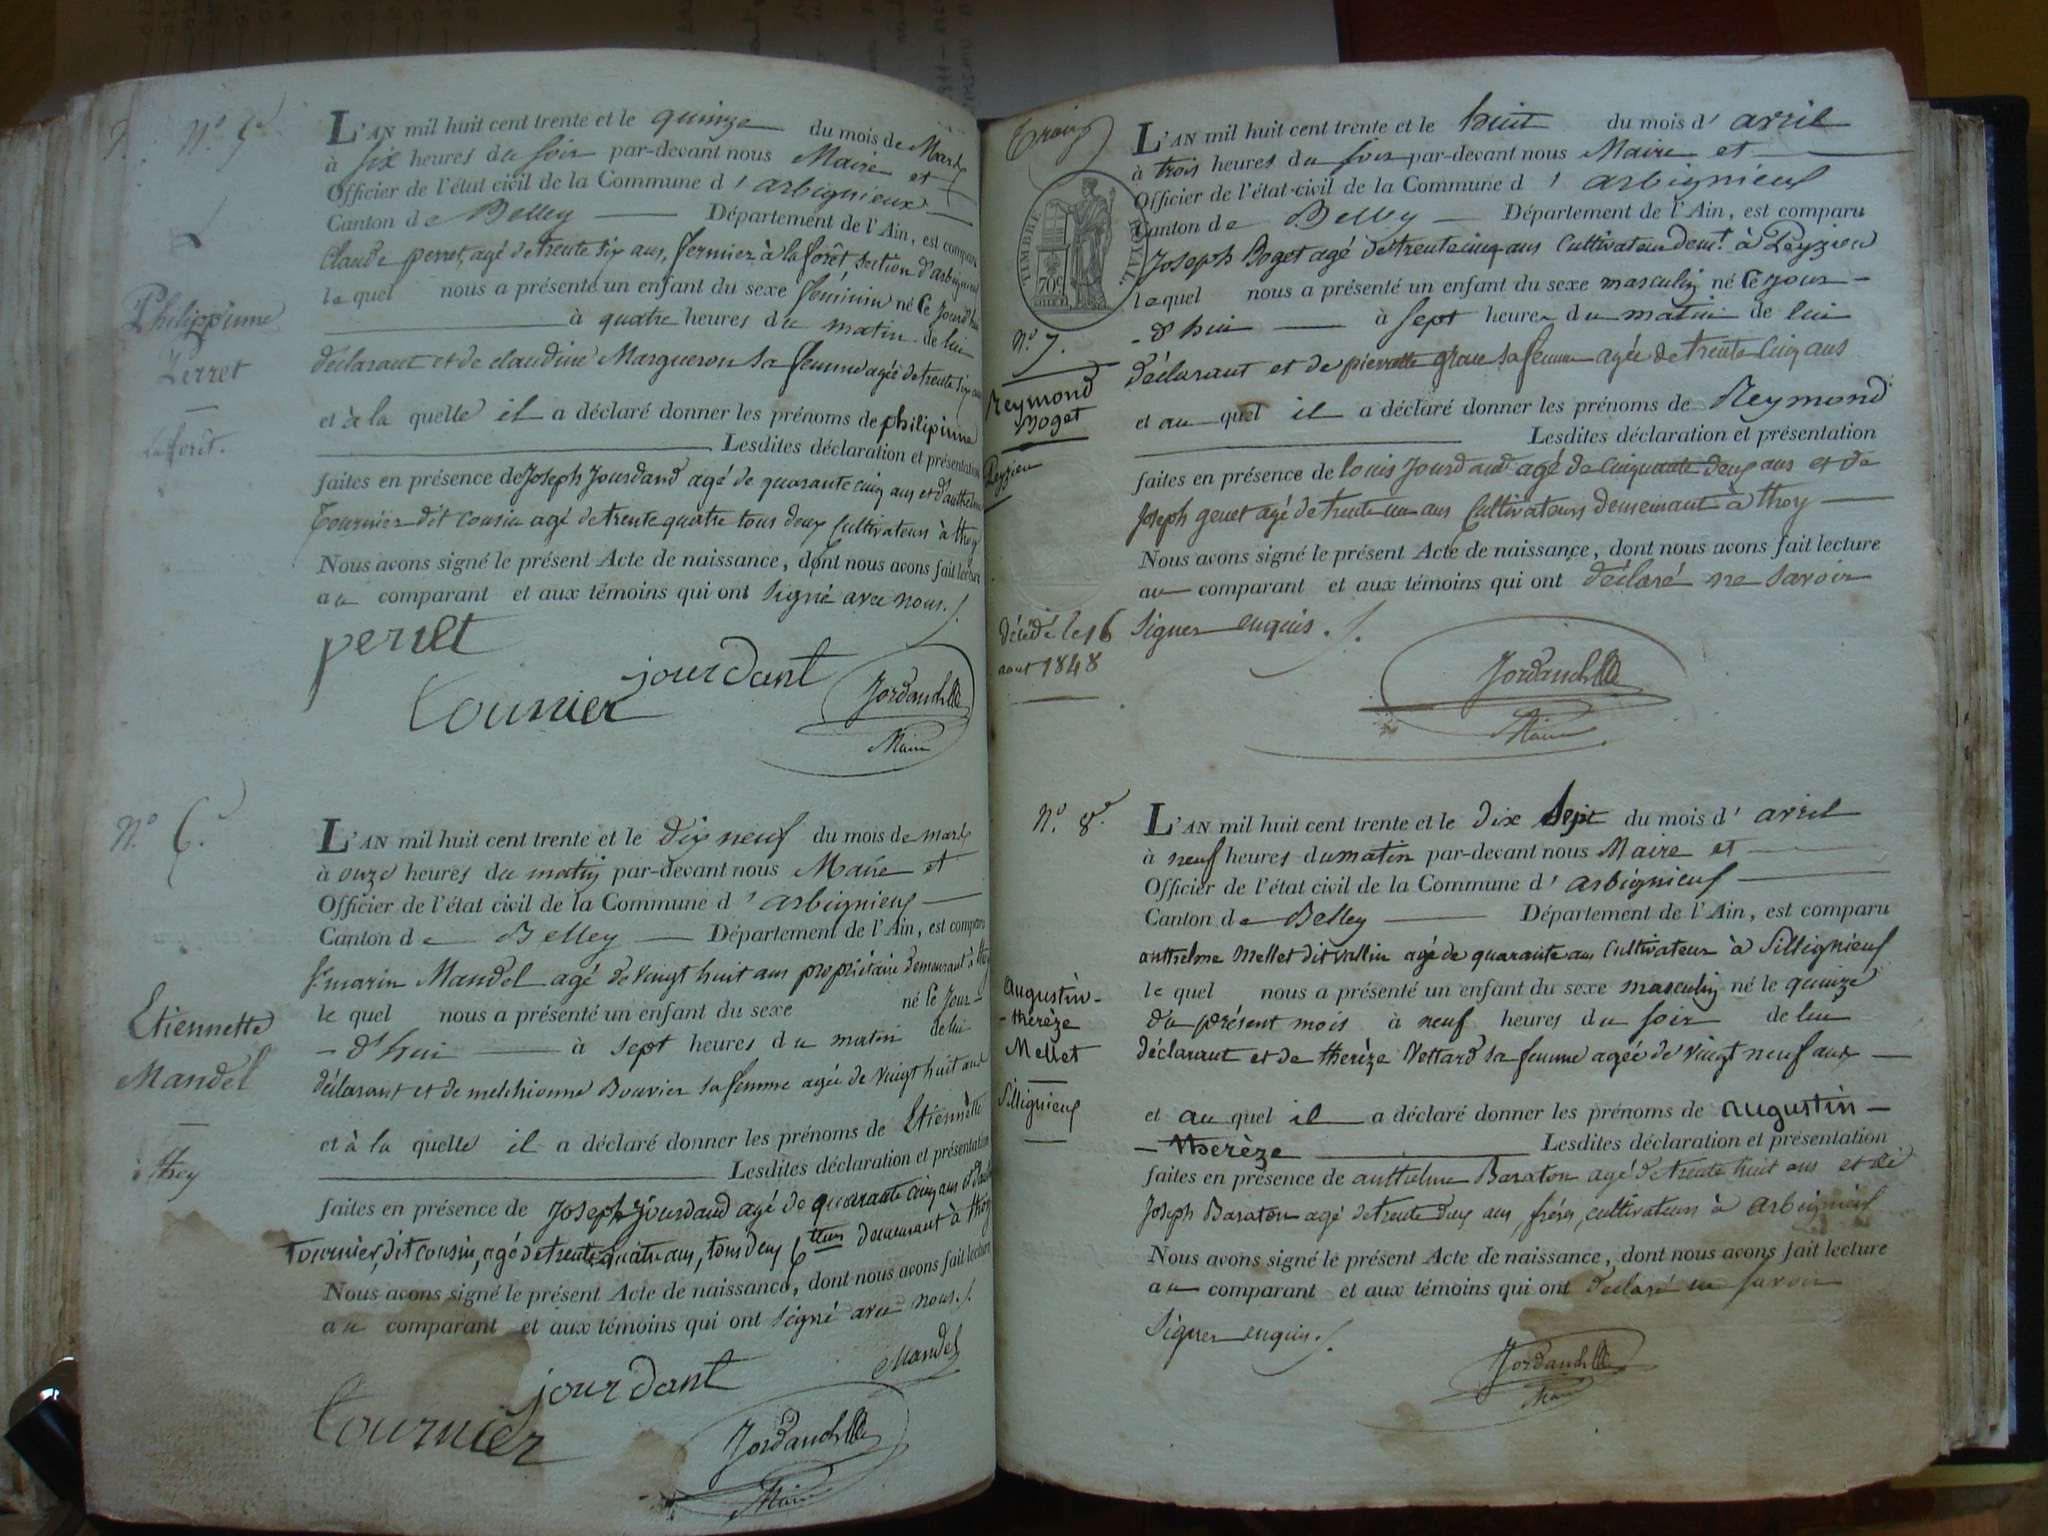 N.º 5.
L'AN mil huit cent trente et le quinze du mois de Mars
à six heures du soir par-devant nous Maire et
Officier de l'état civil de la Commune d'arbignieux
Canton de Belley Département de l'Ain, est comparu
Claude perret, agé de trente six ans, fermier à la forêt section d'arbignieu
lequel nous a présenté un enfant du sexe féminin né Ce jourd'hui
à quatre heures du matin de lui
déclarant et de claudine Margueron sa femme agée de trente six ans
et à la quelle il a déclaré donner les prénoms de philipinne
Lesdites déclaration et présentation
faites en présence de Joseph Jourdand agé de quarante cinq ans et d'anthelme
Tournier dit cousin agé de trente quatre tous deux Cultivateurs à thoy
Nous avons signé le présent Acte de naissance, dont nous avons fait lecture
au comparant et aux témoins qui ont signé avec nous.
Philippinne
Perret
la forêt.
perret
jourdant
Tournier
Maire
N.º 6.
L'AN mil huit cent trente et le dix neuf du mois de mars
à onze heures du matin par-devant nous Maire et
Officier de l'état civil de la Commune d'arbignieux
Canton de Belley Département de l'Ain, est comparu
marin Mandel agé de vingt huit ans propriétaire demeurant à
lequel nous a présenté un enfant du sexe né le jour-
-d'hui à sept heures du matin de lui
déclarant et de melchionne Bouvier sa femme agée de vingt huit ans
et à la quelle il a déclaré donner les prénoms de Etiennette
Lesdites déclaration et présentation
faites en présence de Joseph Jourdand agé de quarante cinq ans et
Tournier, dit cousin, agé de trente quatre ans, tous deux demeurant à thoy
Nous avons signé le présent Acte de naissance, dont nous avons fait lecture
au comparant et aux témoins qui ont signé avec nous.
Etiennette
Mandel
à thoy
Mandel
jourdant
Tournier
Maire
TIMBRE ROYAL
N.º 7.
Reymond
Boget
Peyzieu
L'AN mil huit cent trente et le huit du mois d'avril
à trois heures du soir par-devant nous Maire et
Officier de l'état civil de la Commune d'arbignieux
Canton de Belley Département de l'Ain, est comparu
Joseph Boget agé de trente cinq ans Cultivateur dem.t à Peyzieu
lequel nous a présenté un enfant du sexe masculin né Ce jour-
-d'hui à sept heures du matin de lui
déclarant et de pierrette grave sa femme agée de trente cinq ans
et au quel il a déclaré donner les prénoms de Reymond
Lesdites déclaration et présentation
faites en présence de louis Jourdand agé de cinquante deux ans et de
Joseph genet agé de trente un ans Cultivateurs demeurant à thoy
Nous avons signé le présent Acte de naissance, dont nous avons fait lecture
au comparant et aux témoins qui ont déclaré ne savoir
signer enquis.
décédé le 16
aout 1848
Maire
N.º 8.
L'AN mil huit cent trente et le dix Sept du mois d'avril
à neuf heures du matin par-devant nous Maire et
Officier de l'état civil de la Commune d'arbignieux
Canton de Belley Département de l'Ain, est comparu
anthelme Mellet dit vallin agé de quarante ans Cultivateur à Sillignieux
lequel nous a présenté un enfant du sexe masculin né le quinze
du présent mois à neuf heures du soir de lui
déclarant et de therèze Vettard sa femme agée de vingt neuf ans
et au quel il a déclaré donner les prénoms de augustin-
-therèze Lesdites déclaration et présentation
faites en présence de anthelme Baraton agé de trente huit ans et de
Joseph Baraton agé de trente deux ans, frères, cultivateurs à arbignieux
Nous avons signé le présent Acte de naissance, dont nous avons fait lecture
au comparant et aux témoins qui ont déclaré ne savoir
signer enquis.
augustin-
-therèze
Mellet
Sillignieux
Maire